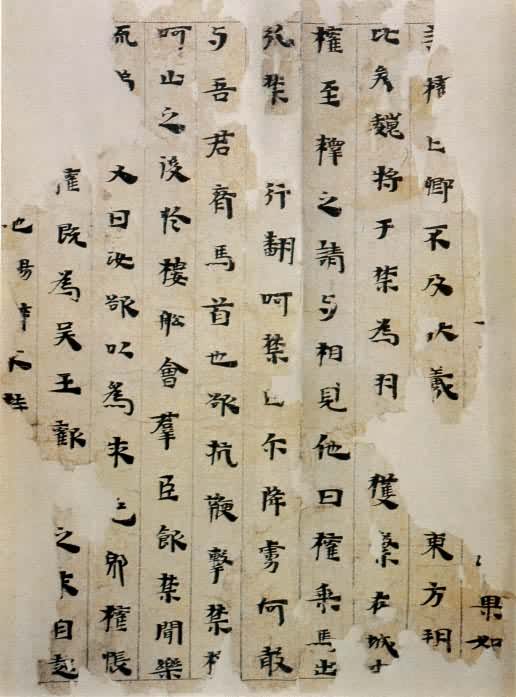 果如
權曰卿不及伏羲 東方朔
比矣魏將于禁為羽 獲繫在城中
權至釋之請与相見他日權乘馬出
引禁 行翻呵禁曰尒降虜何敢
与吾君齊馬首也欲抗鞭擊禁
呵止之後於樓船會羣臣飲禁聞樂
流 又曰汝欲以為求免邪權悵
權既為吳王歡 之末自起
也易 不